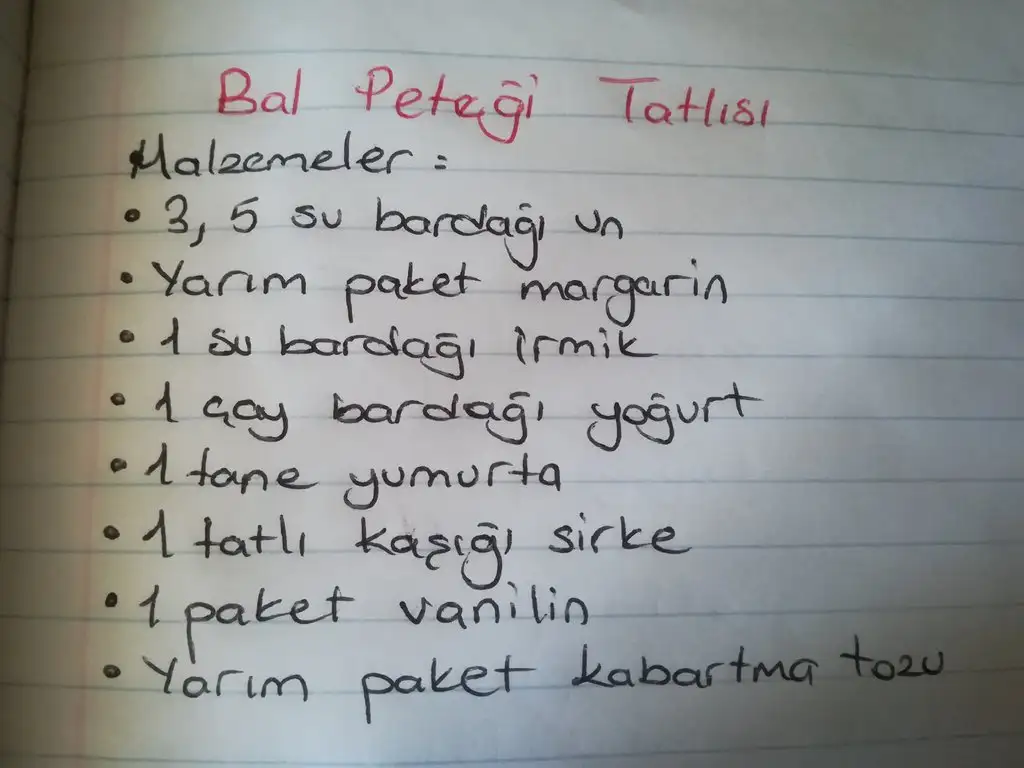 Bal Peteği Tatlısı
Malzemeler:
• 3,5 su bardağı un
• Yarım paket margarin
• 1 su bardağı irmik
• 1 çay bardağı yoğurt
• 1 tane yumurta
• 1 tatlı kaşığı sirke
• 1 paket vanilin
• Yarım paket kabartma tozu